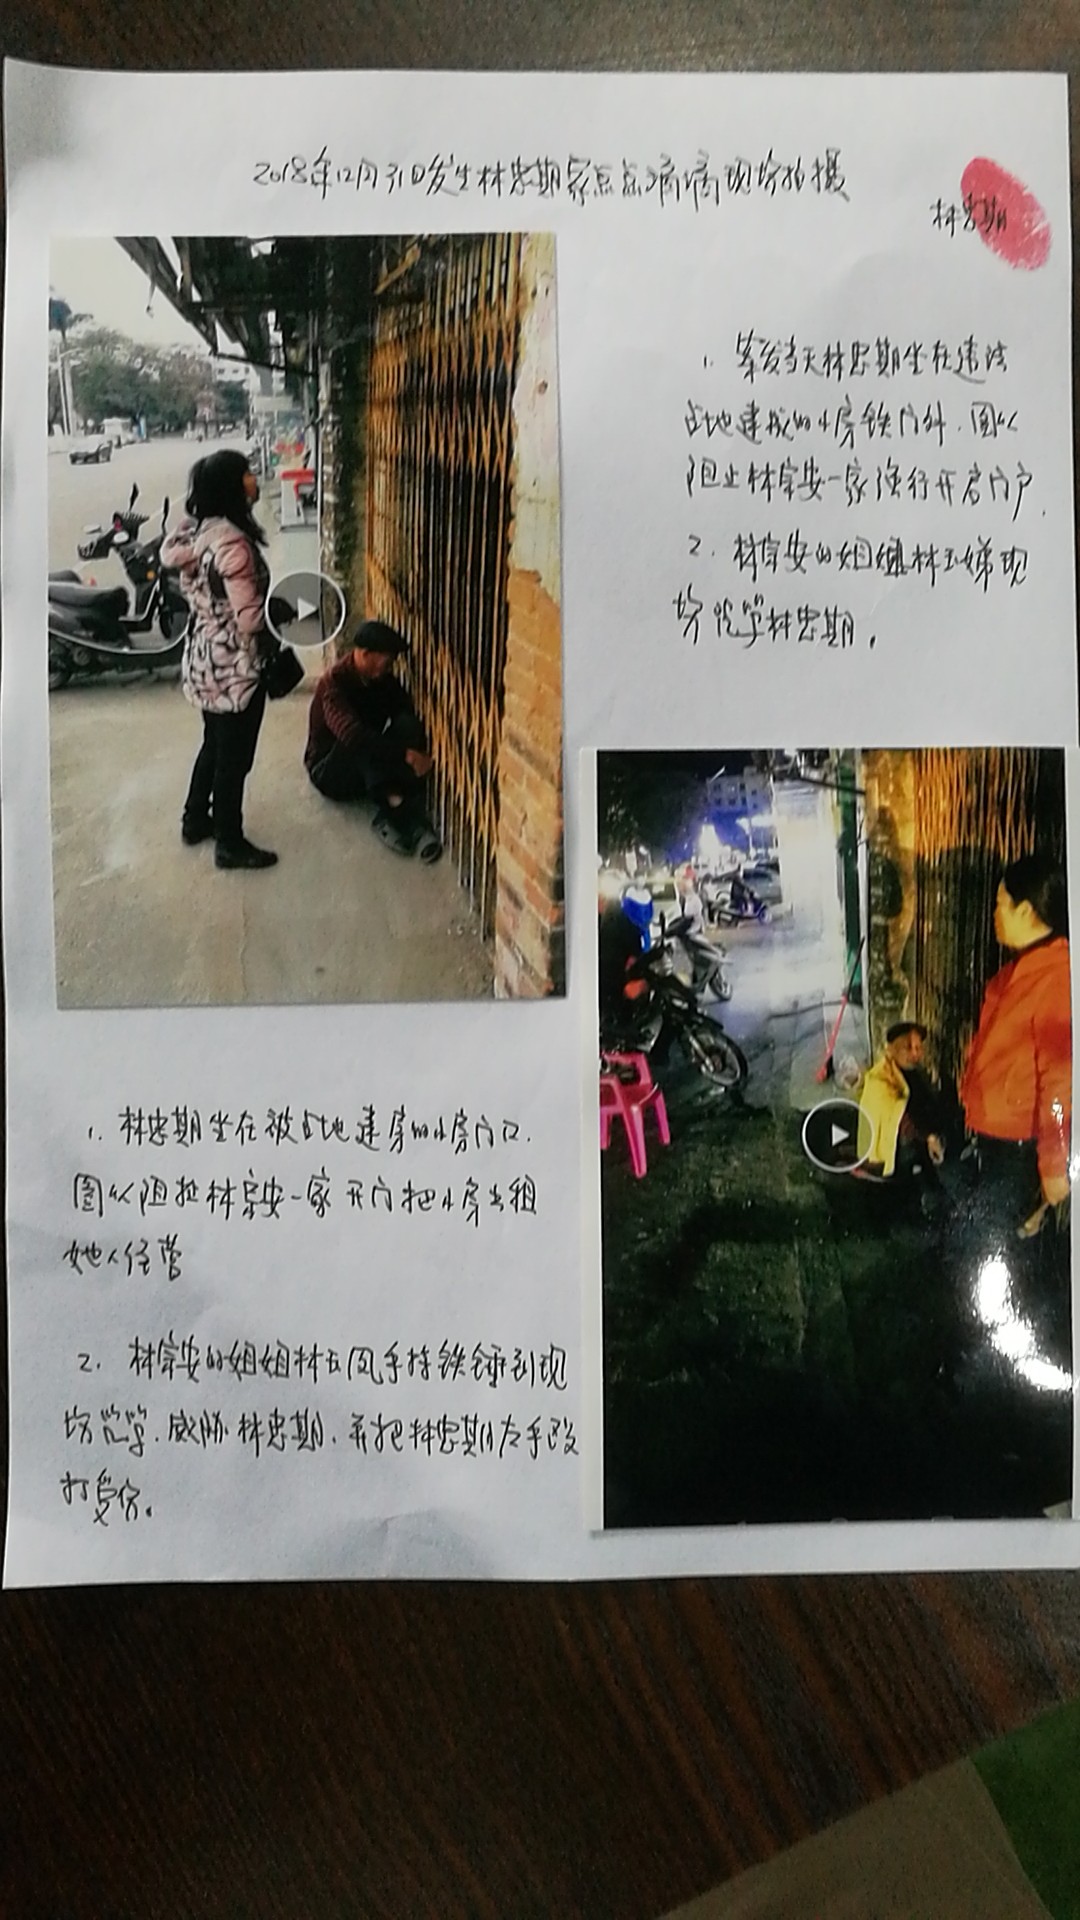 2018年12月31日发生林忠期家点点滴滴现场拍摄
林忠期
1. 案发当天林忠期坐在违法
占地建成的小房铁门外,图以
阻止林宗安一家强行开启门户.
2. 林宗安的姐林玉娣现
场咒骂林忠期。
1. 林忠期坐在被占地建房的小房门口.
图以阻拦林宗安一家开门把小房出租
她人经营
2. 林宗安的姐姐林玉凤手持铁锤到现
场咒骂.威胁林忠期.并把林忠期左手殴
打受伤。